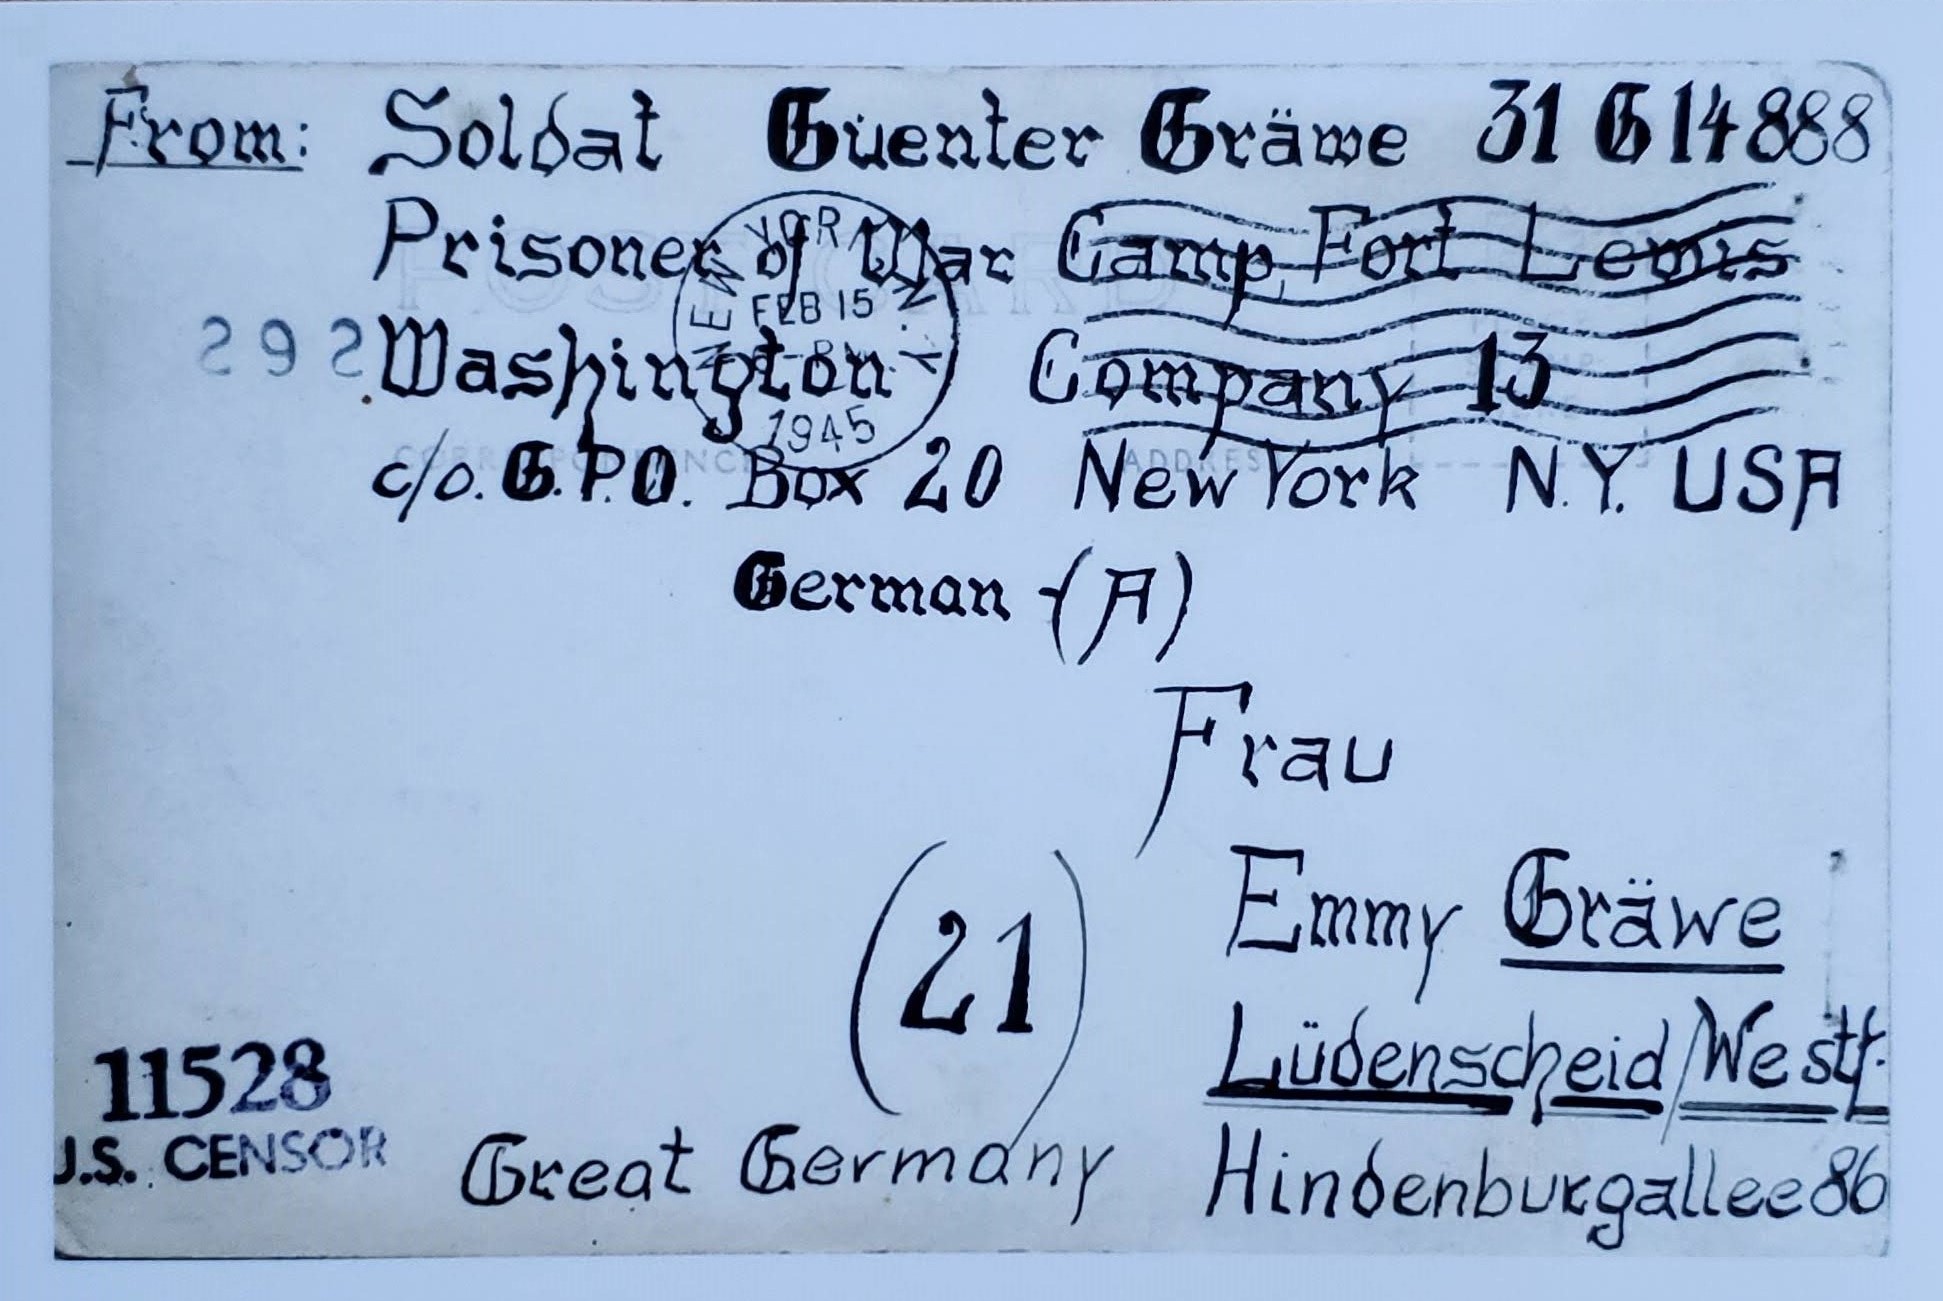 From: Soldat Güenter Gräwe 31 G 14888
Prisoner of War Camp, Fort Lewis
NEW YORK, N.Y.
FEB 15
1945
292
Washington Company 13
POST CARD
CORRESPONDENCE ADDRESS
c/o. G.P.O. Box 20 New York N.Y. USA
German -(A)
Frau
(21)
Emmy Gräwe
Lüdenscheid/Westf.
11528
U.S. CENSOR
Great Germany
Hindenburgallee 86